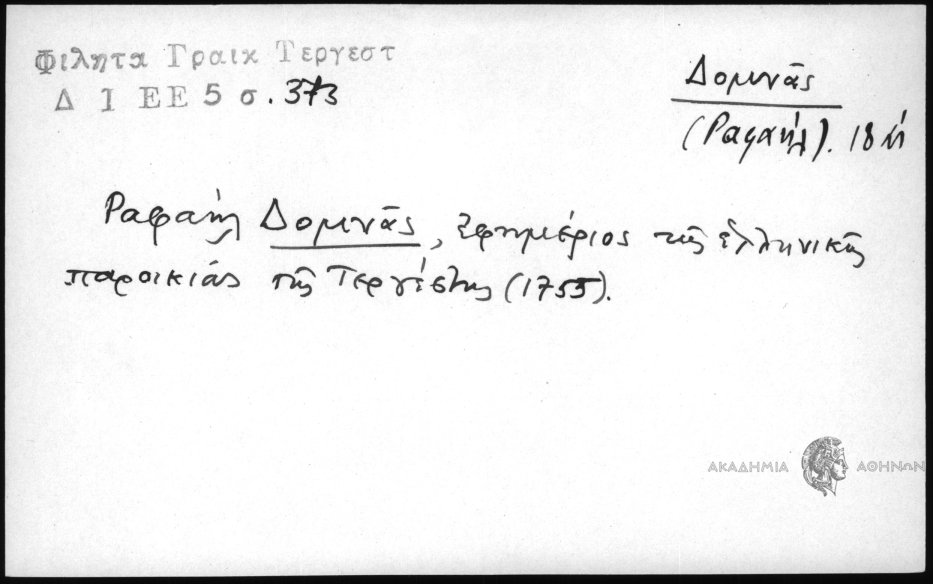 Φιλητα Γραικ Τεργεστ
Δ 1 ΕΕ 5 σ. 373
Δομνᾶς
(Ραφαήλ). 18
Ραφαήλ Δομνᾶς, ἐφημέριος τῆς ἑλληνικῆς
παροικίας τῆς Τεργέστης (1755).
ΑΚΑΔΗΜΙΑ ΑΘΗΝΩΝ